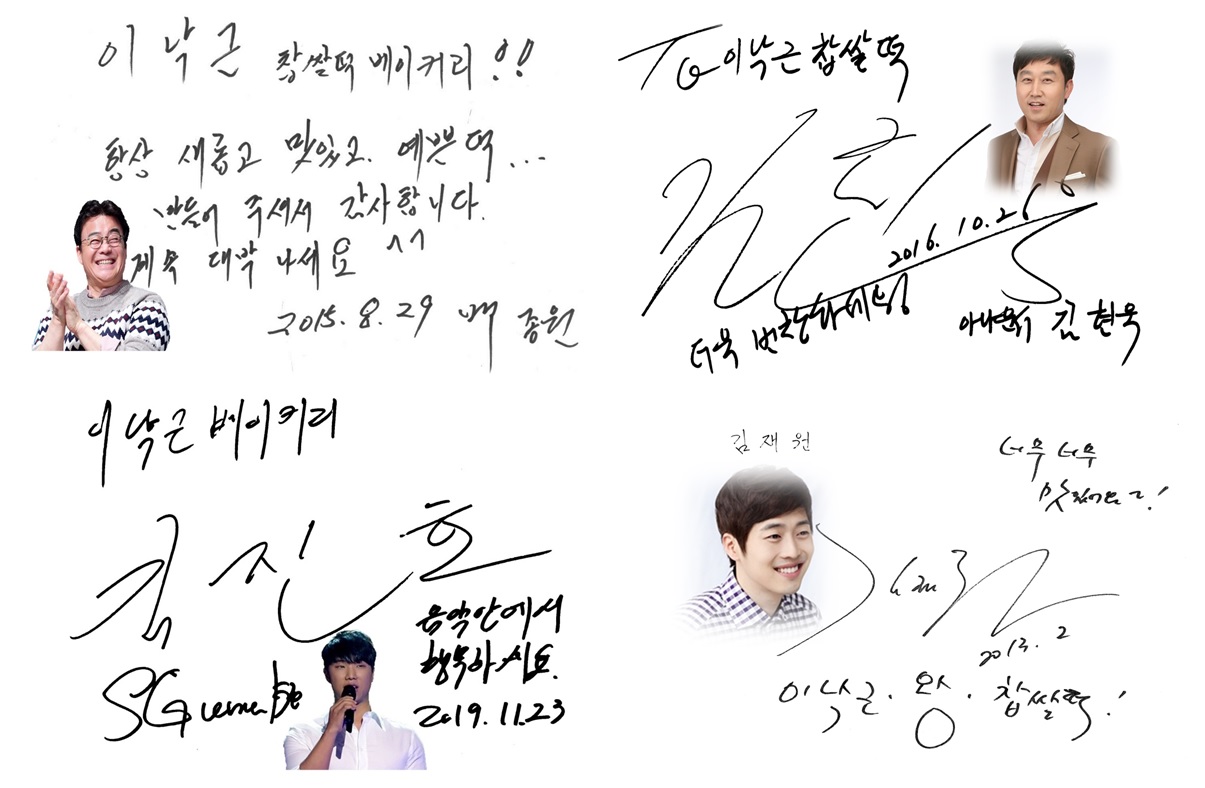 이 낙 근 찹쌀떡 베이커리 !!
항상 새롭고 맛있고. 예쁜떡...
만들어 주셔서 감사합니다.
계속 대박 나세요 ^^
2015. 8. 29 백 종원
To 이낙근 찹쌀떡
2016. 10. 26
더욱 번창하세요
아나운서 김현욱
이낙근 베이커리
김진호
음악안에서
행복하시요.
SG wannabe
2019. 11. 23
김 재 원
너무 너무
맛있어요!
2013. 2
이낙근. 왕. 찹쌀떡!